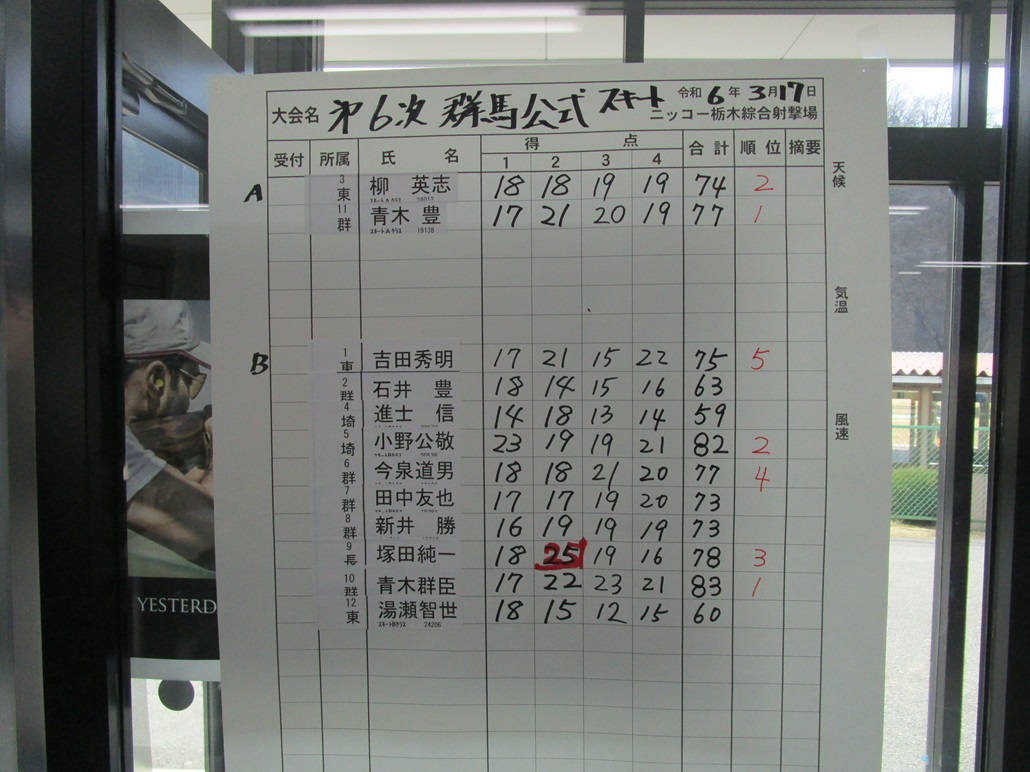 大会名 第6次 群馬公式 スキート 令和 6 年 3月 17日
ニッコー栃木綜合射撃場
受付 所属 氏 名 得 点 合計 順位 摘要
1 2 3 4
天候
気温
風速
A 3 東 柳 英志 18 18 19 19 74 2
11 群 青木 豊 17 21 20 19 77 1
スキートAクラス 19138
B 1 東 吉田秀明 17 21 15 22 75 5
2 群 石井 豊 18 14 15 16 63
4 埼 進士 信 14 18 13 14 59
5 埼 小野公敬 23 19 19 21 82 2
6 群 今泉道男 18 18 21 20 77 4
7 群 田中友也 17 17 19 20 73
8 群 新井 勝 16 19 19 19 73
9 長 塚田純一 18 25 19 16 78 3
10 群 青木群臣 17 22 23 21 83 1
12 東 湯瀬智世 18 15 12 15 60
スキートBクラス 24206
YESTERD